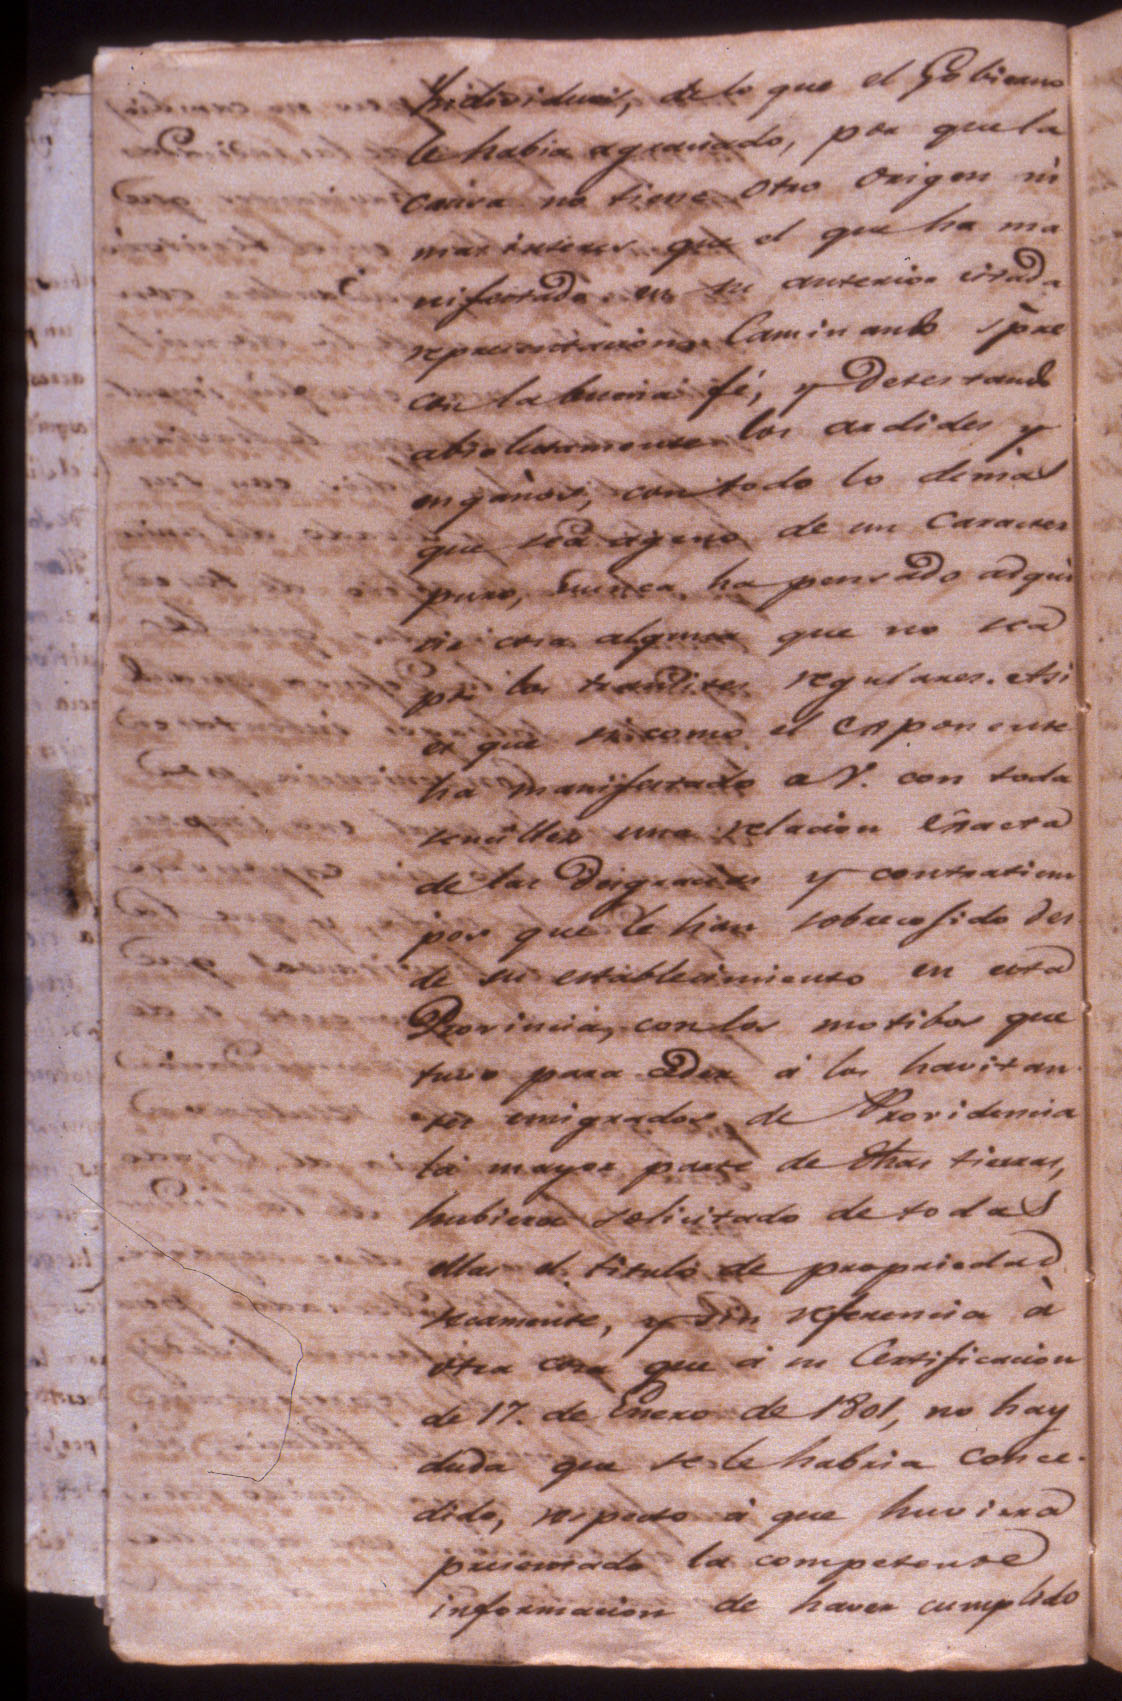 Individuos, de lo que el Gobierno
le habia agraciado, por que la
causa no tiene otro origen ni
mas interes que el que ha ma
nifestado en su anterior citada
representacion. Caminando spre
con la buena fé, y Detestando
absolutamente los ardides y
engaños, con todo lo demas
que sea ageno de un Caracter
puro, nunca ha pensado adqui
rir cosa alguna que no sea
pr. los tramites regulares. Asi
es que asi como el Exponente
ha manifestado a V. con toda
sencillez una relacion exacta
de las Desgracias y contratiem
pos que le han sobrecojido des
de su establecimiento en esta
Provincia, con los motibos que
tuvo para ceder á los havitan
tes emigrados de Providencia
la mayor parte de dhas tierras,
hubiera solicitado de todas
ellas el titulo de propriedad
secamente, y sin referencia à
otra cosa que á su Certificacion
de 17. de Enero de 1801, no hay
duda que se le habria conce-
dido, respecto á que huviera
presentado la competente
informacion de haver cumplido